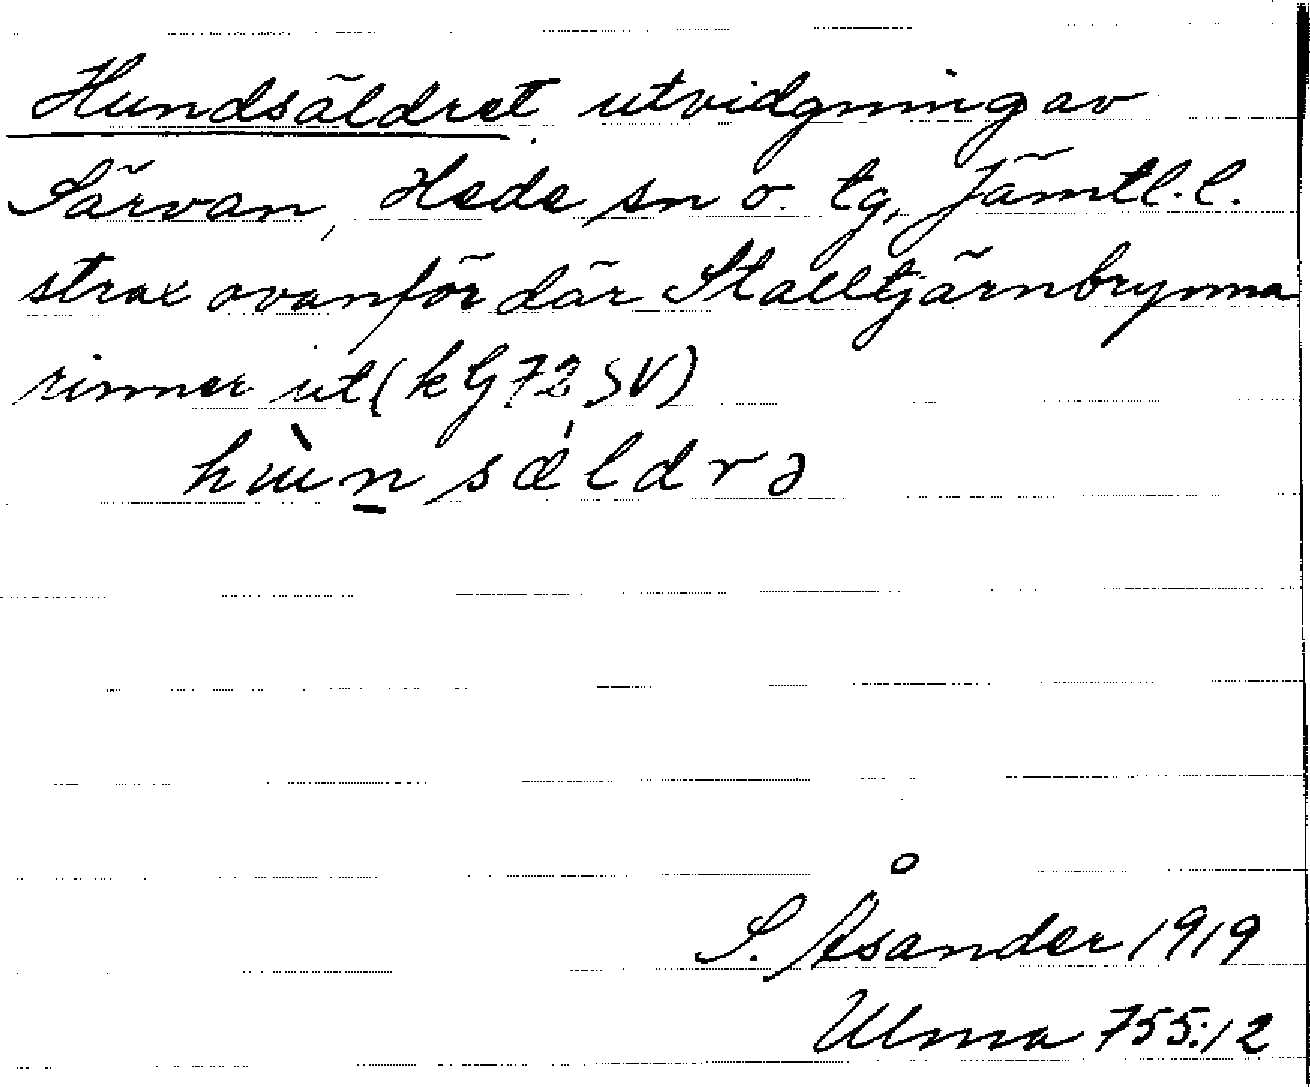 Hundsäldret utvidgning av
Särvan, Hede sn o. tg, Jämtl. l.
strax ovanför där Stalltjärnbrynna
rinner ut (kG 72 SV)
hùn̠sæ̍ldrə
S. Åsander 1919
Ulma 755:12